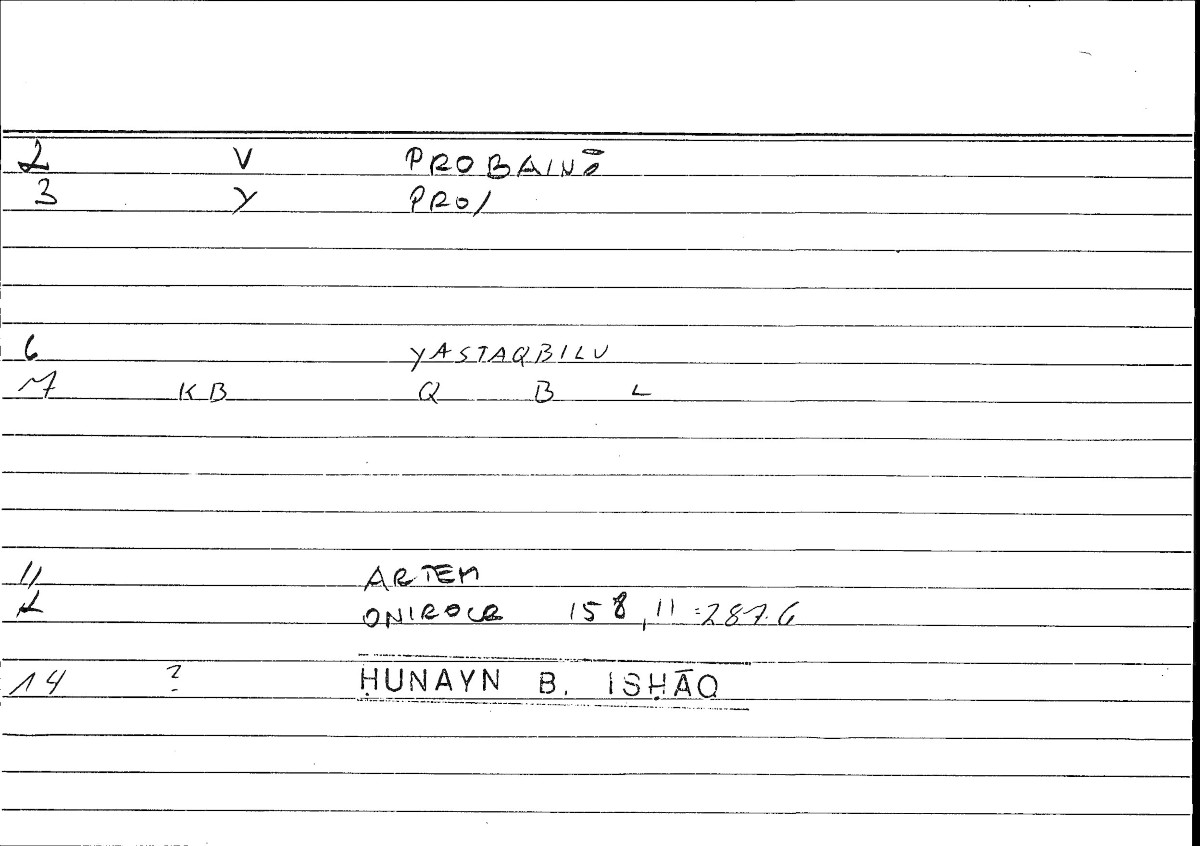 2 V PROBAINŌ
3 Y PRO/
6 YASTAQBILU
7 KB Q B L
11 ARTEM
ONIROCR 158,11 = 287.6
14 ? ḤUNAYN B. ISḤĀQ